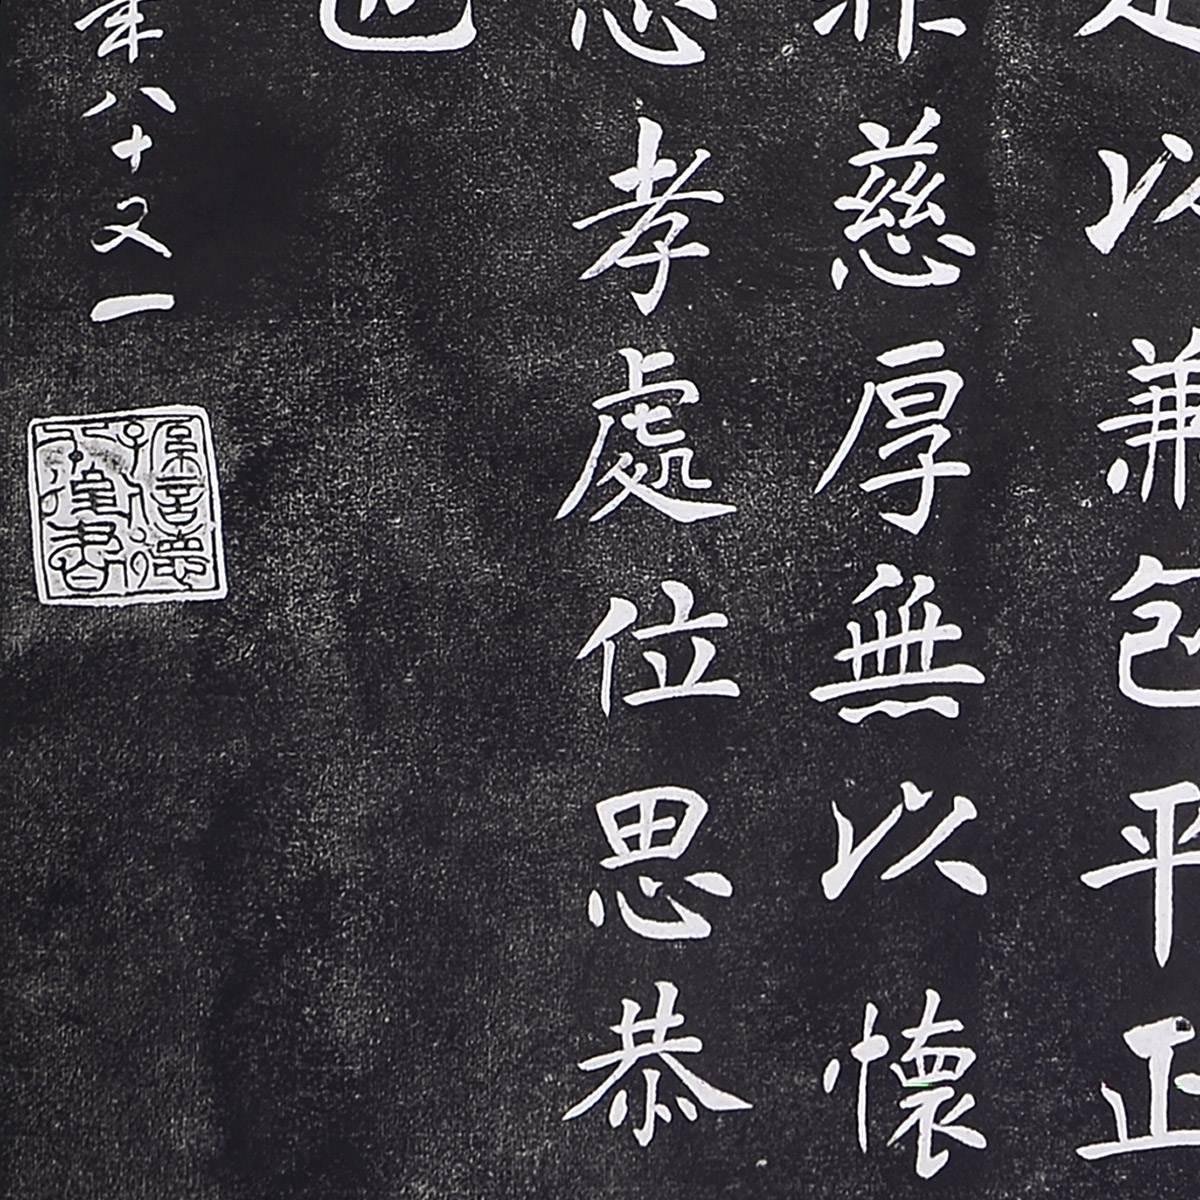 足以兼包平正
非慈厚無以懷
思孝處位思恭
也
年八十又一